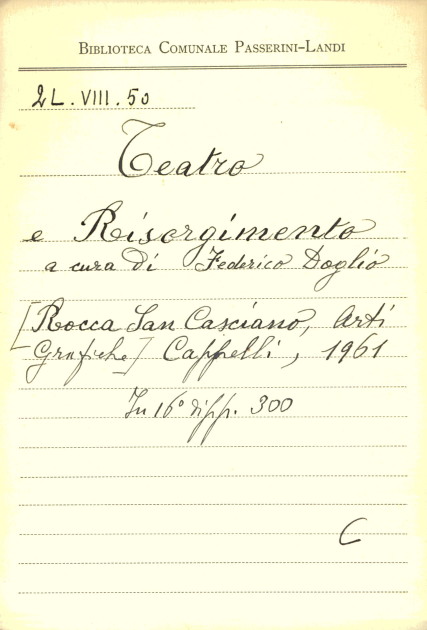 BIBLIOTECA COMUNALE PASSERINI-LANDI
2L.VIII.50
Teatro
e Risorgimento
a cura di Federico Doglio
[Rocca San Casciano, Arti
Grafiche] Cappelli, 1961
In 16° di pp. 300
C